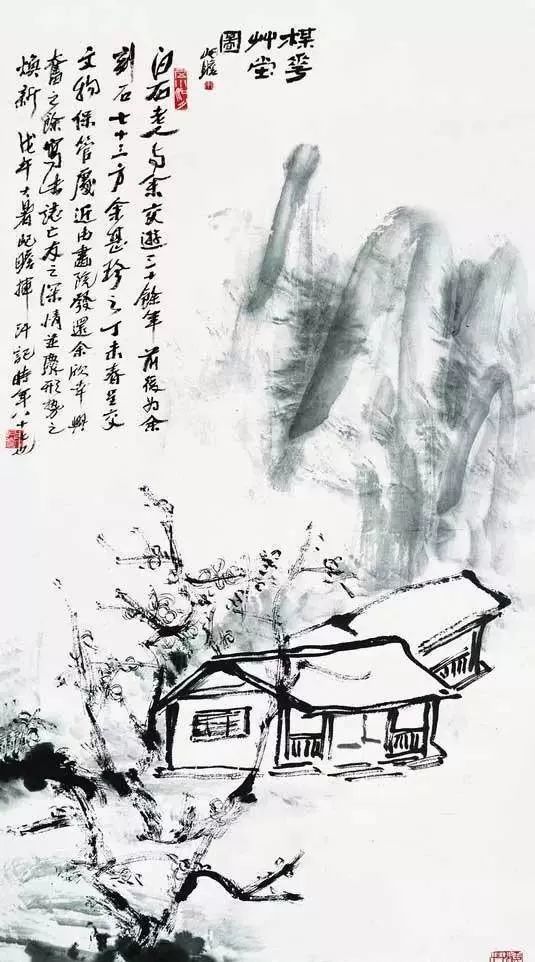 楳華
艸堂
圖
屺瞻
白石老人与余交遊三十餘年 前後为余
刻石七十三方余甚珍之丁未春呈交
文物保管處近由畫院發還余欣幸興
奮之餘寫此誌亡友之深情並慶形勢之
焕新 戊午大暑屺瞻揮汗記時年八十七也